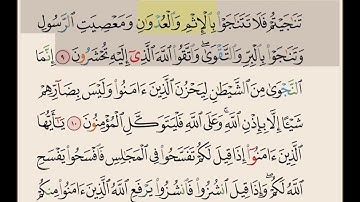 تَنَـٰجَيْتُمْ فَلَا تَتَنَـٰجَوْا۟ بِٱلْإِثْمِ وَٱلْعُدْوَٰنِ وَمَعْصِيَتِ ٱلرَّسُولِ
وَتَنَـٰجَوْا۟ بِٱلْبِرِّ وَٱلتَّقْوَىٰ ۖ وَٱتَّقُوا۟ ٱللَّهَ ٱلَّذِىٓ إِلَيْهِ تُحْشَرُونَ ٩ إِنَّمَا
ٱلنَّجْوَىٰ مِنَ ٱلشَّيْطَـٰنِ لِيَحْزُنَ ٱلَّذِينَ ءَامَنُوا۟ وَلَيْسَ بِضَآرِّهِمْ
شَيْـًٔا إِلَّا بِإِذْنِ ٱللَّهِ ۚ وَعَلَى ٱللَّهِ فَلْيَتَوَكَّلِ ٱلْمُؤْمِنُونَ ١٠ يَـٰٓأَيُّهَا
ٱلَّذِينَ ءَامَنُوٓا۟ إِذَا قِيلَ لَكُمْ تَفَسَّحُوا۟ فِى ٱلْمَجَـٰلِسِ فَٱفْسَحُوا۟ يَفْسَحِ
ٱللَّهُ لَكُمْ ۖ وَإِذَا قِيلَ ٱنشُزُوا۟ فَٱنشُزُوا۟ يَرْفَعِ ٱللَّهُ ٱلَّذِينَ ءَامَنُوا۟ مِنكُمْ